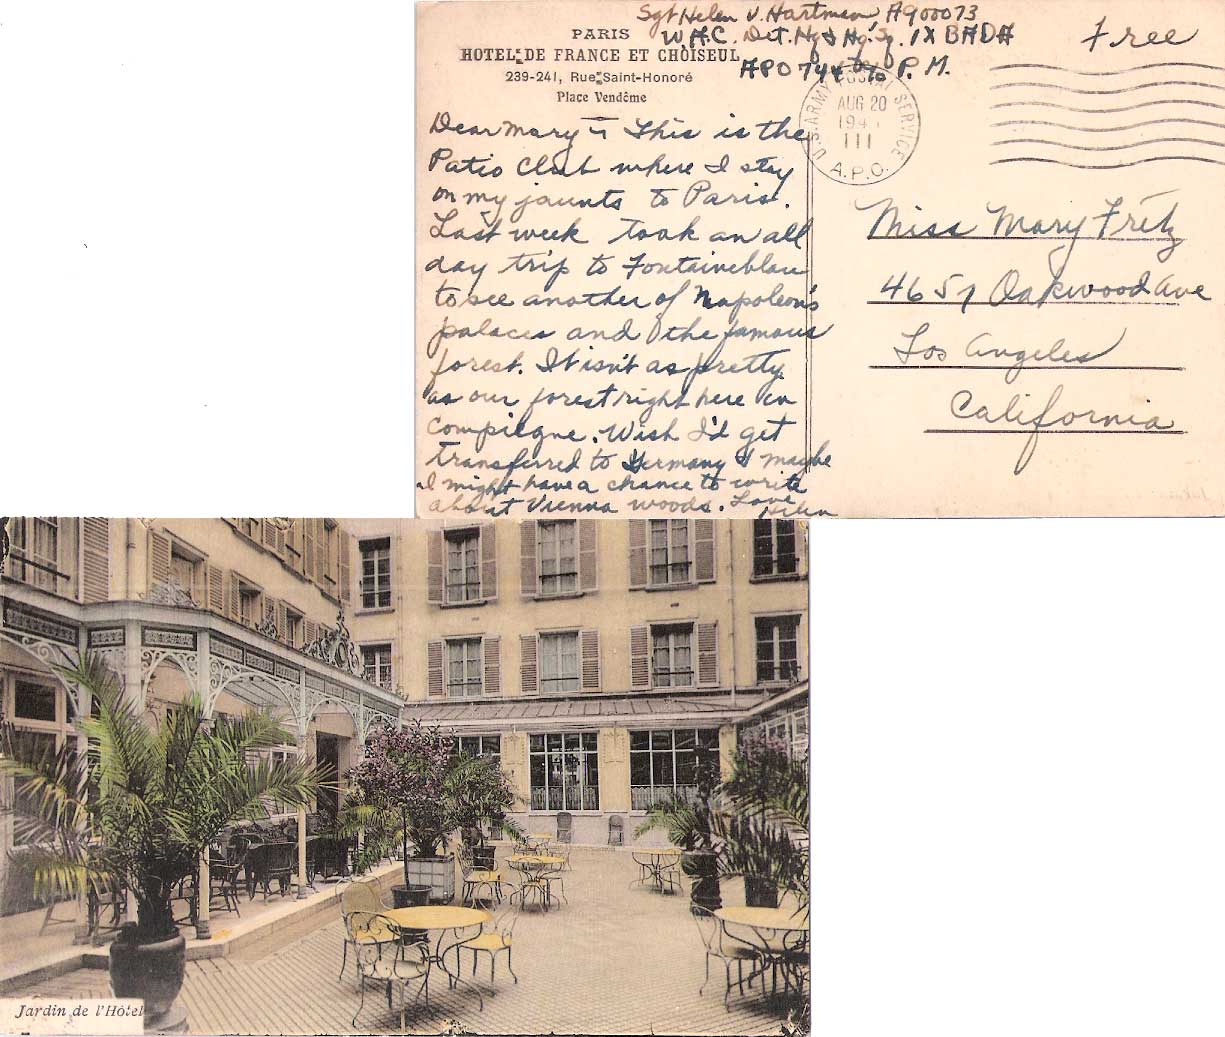 Sgt Helen V. Hartman A900073
W.A.C. Det. Hq & Hq. Sq. IX BADA
APO 744 % P.M.
Free
PARIS
HOTEL DE FRANCE ET CHOISEUL
239-241, Rue Saint-Honoré
Place Vendôme
U.S. ARMY POSTAL SERVICE
AUG 20
194
111
A.P.O.
Dear Mary - This is the
Patio Club where I stay
on my jaunts to Paris.
Last week took an all
day trip to Fontaineblau
to see another of Napoleon's
palaces and the famous
forest. It isn't as pretty
as our forest right here in
Compiegne. Wish I'd get
transferred to Germany & maybe
I might have a chance to write
about Vienna woods. Love
Helen
Miss Mary Fretz
4657 Oakwood Ave
Los Angeles
California
Jardin de l'Hôtel